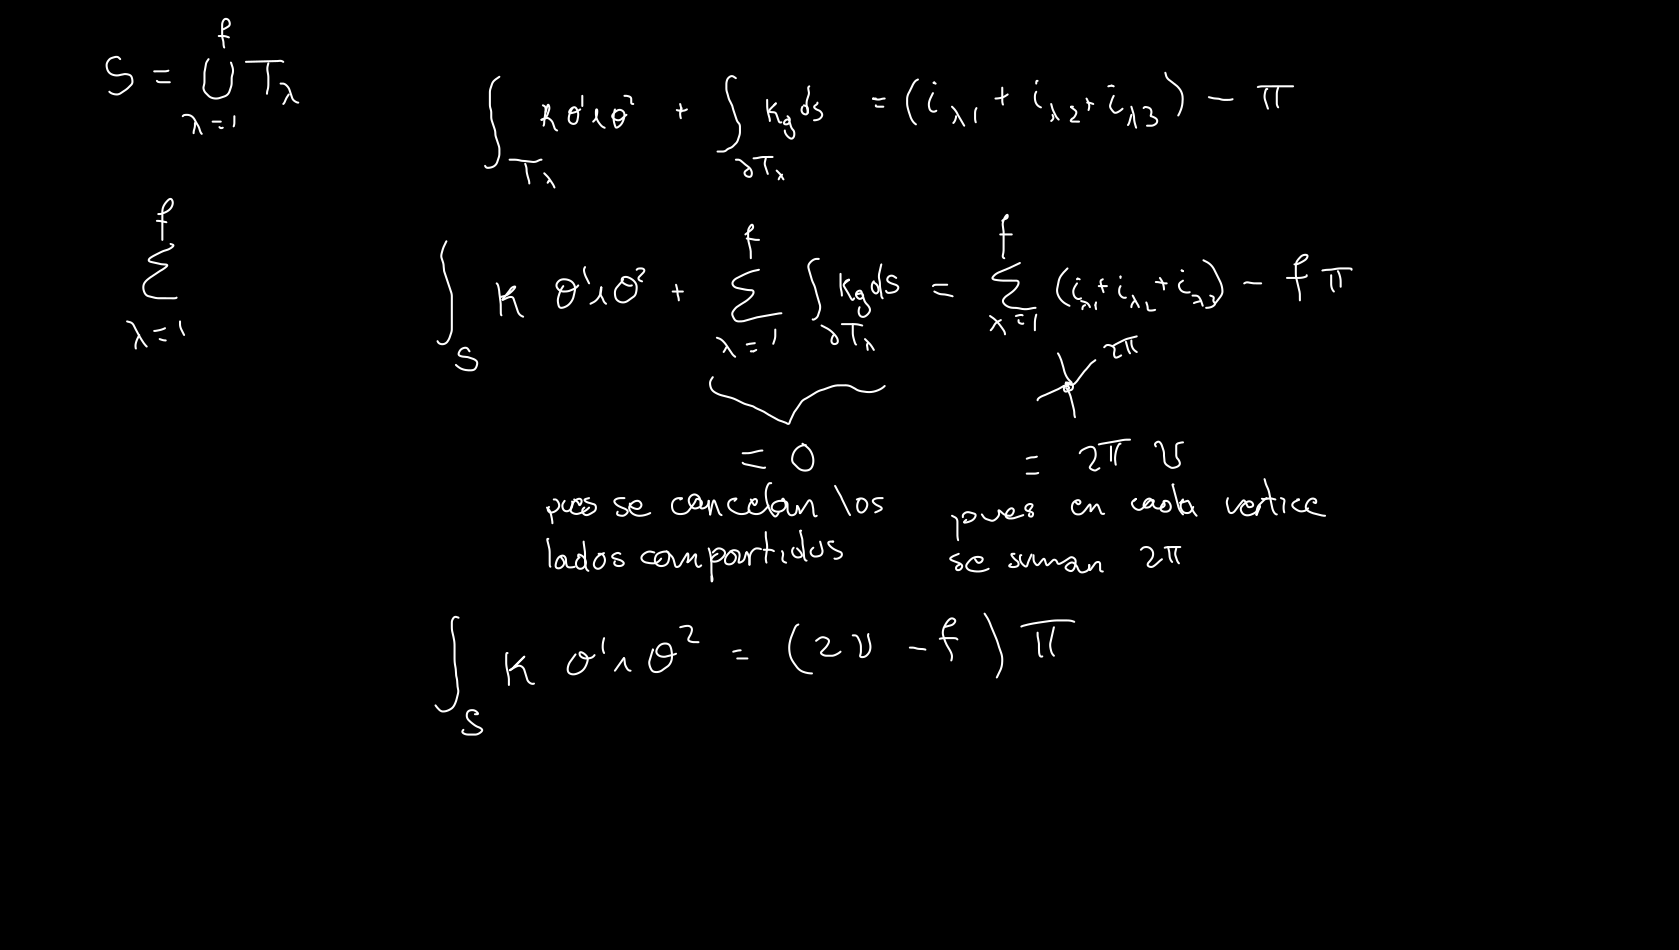 S = ⋃_{λ=1}^{f} T_λ
∫_{T_λ} K θ¹∧θ² + ∫_{∂T_λ} k_g ds = (i_{λ1} + i_{λ2} + i_{λ3}) − π
∑_{λ=1}^{f}
∫_S K θ¹∧θ² + ∑_{λ=1}^{f} ∫_{∂T_λ} k_g ds = ∑_{λ=1}^{f} (i_{λ1} + i_{λ2} + i_{λ3}) − f π
2π
= 0
pues se cancelan los
lados compartidos
= 2π v
pues en cada vertice
se suman 2π
∫_S K θ¹∧θ² = (2v − f) π